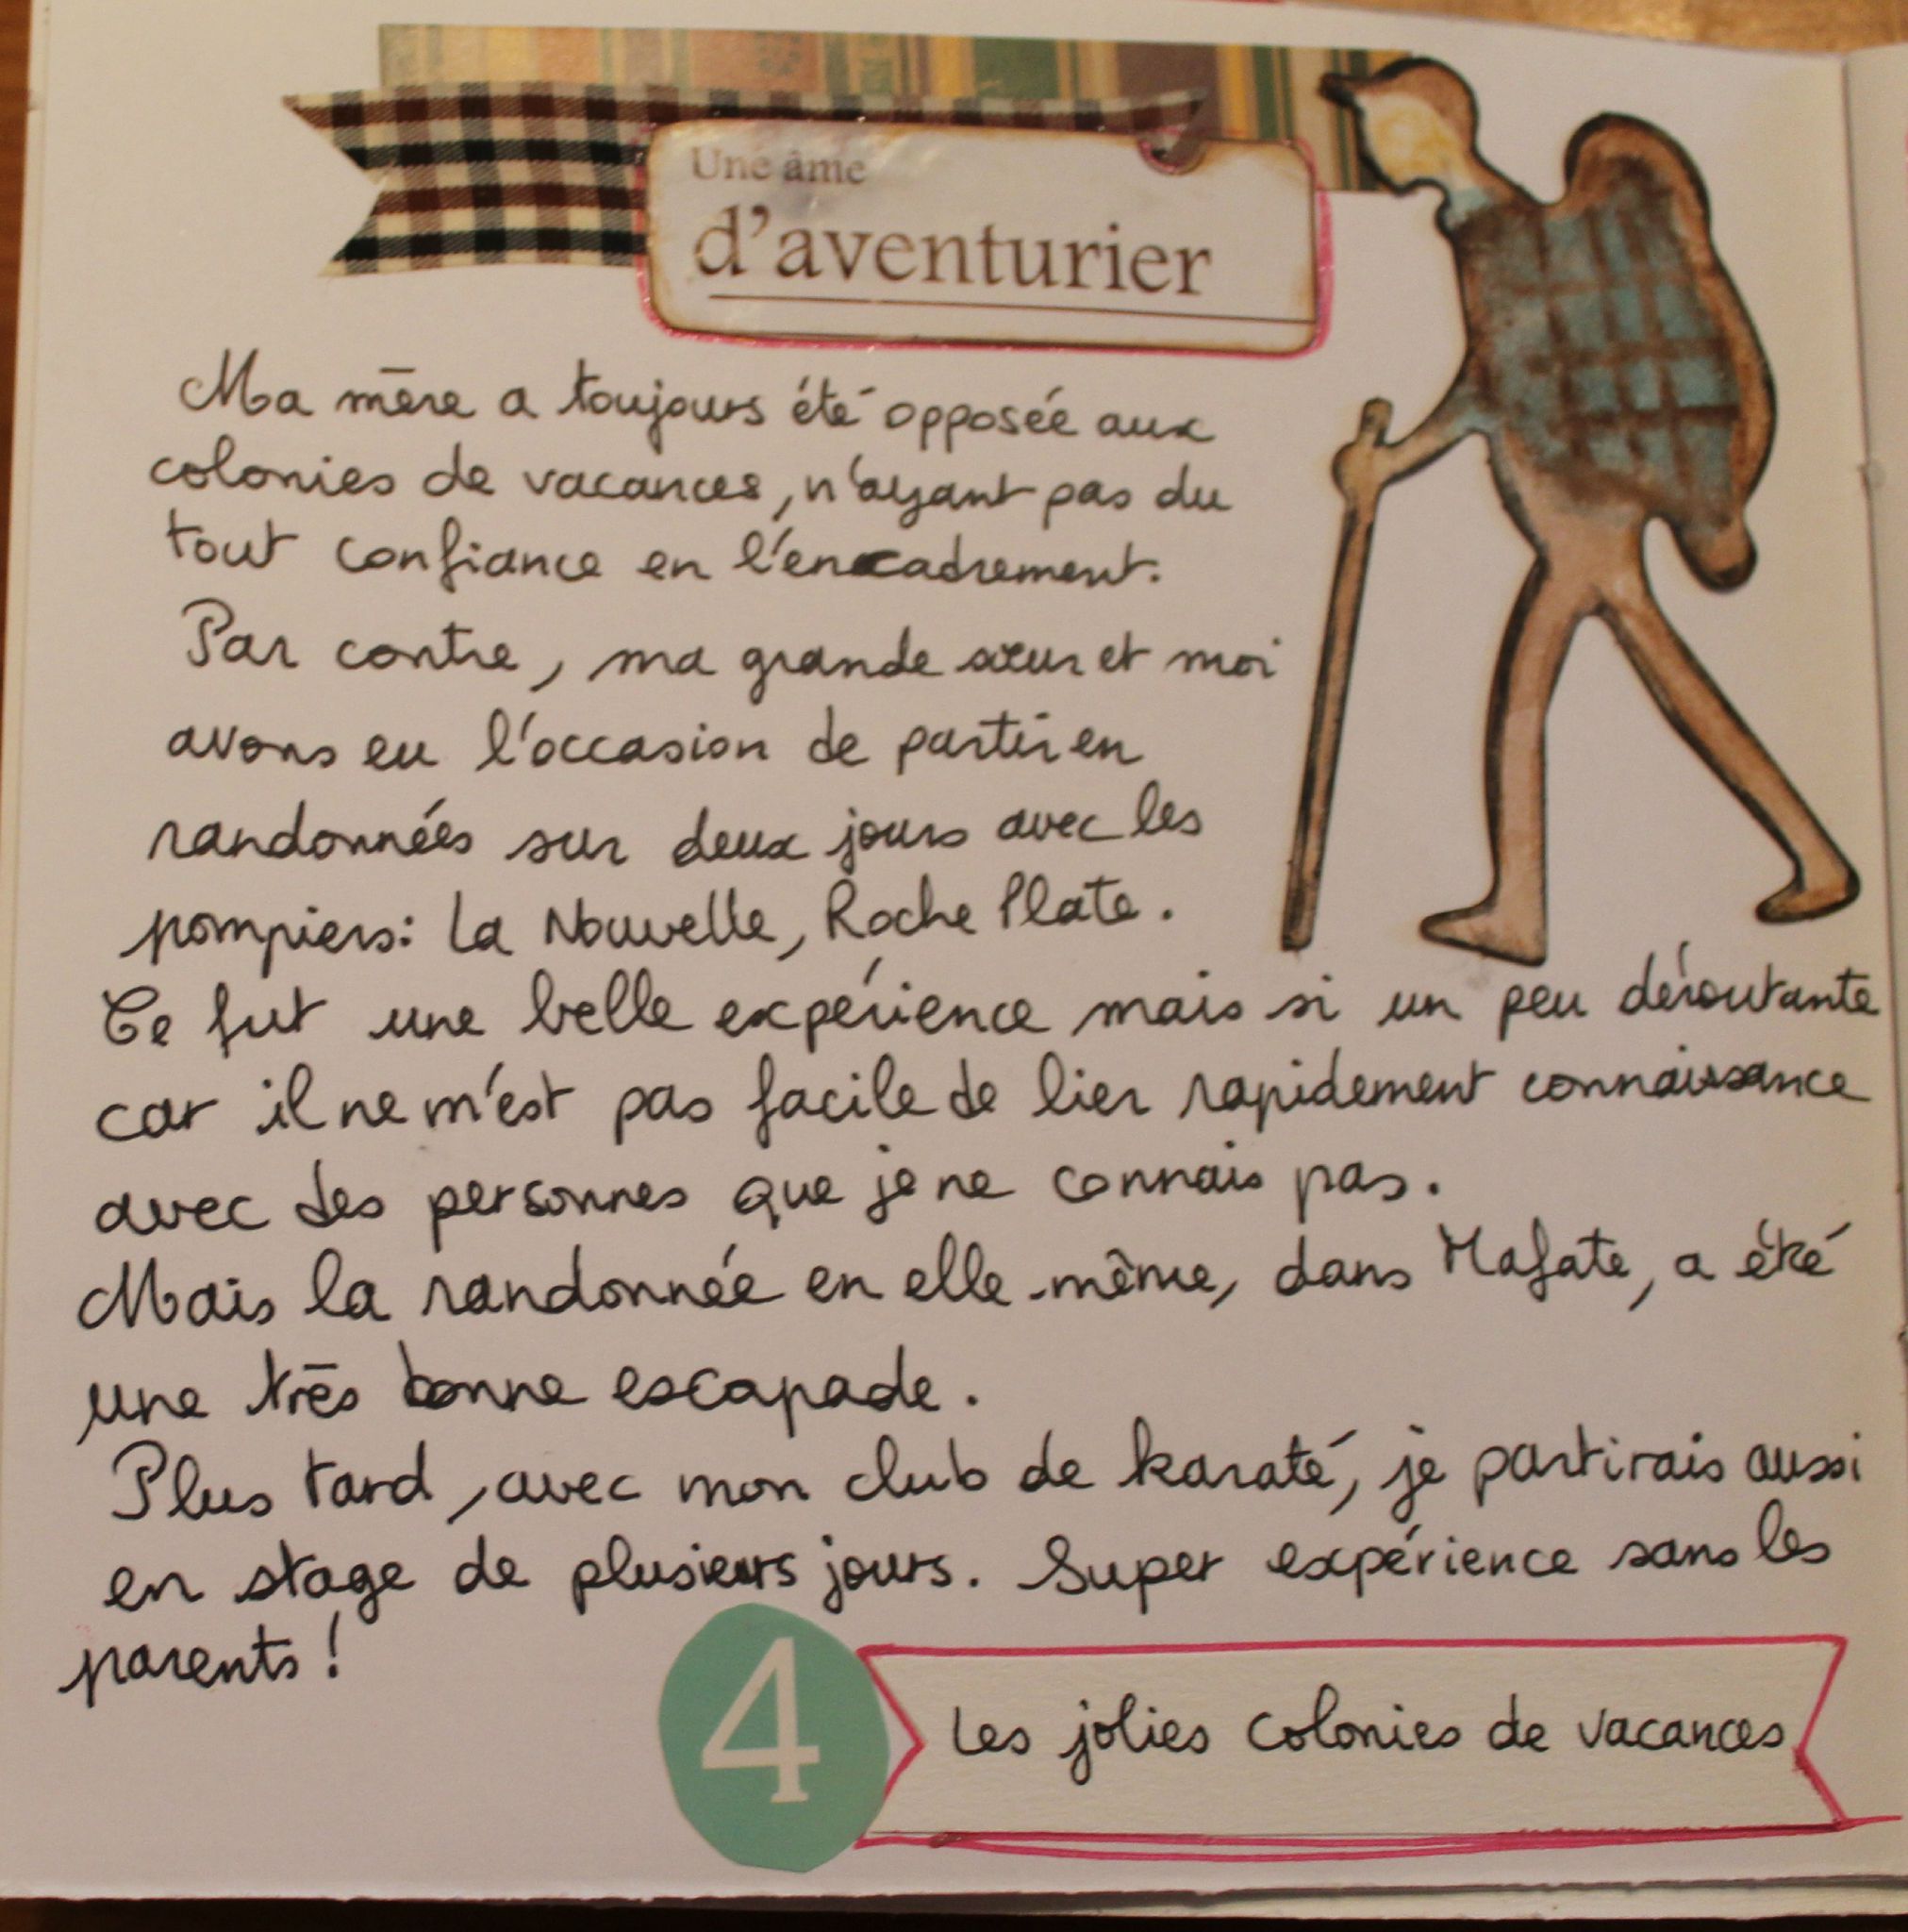 Une âme
d'aventurier
Ma mère a toujours été opposée aux
colonies de vacances, n'ayant pas du
tout confiance en l'encadrement.
Par contre, ma grande sœur et moi
avons eu l'occasion de partir en
randonnées sur deux jours avec les
pompiers: La Nouvelle, Roche Plate.
Ce fut une belle expérience mais si un peu déroutante
car il ne m'est pas facile de lier rapidement connaissance
avec des personnes que je ne connais pas.
Mais la randonnée en elle-même, dans Mafate, a été
une très bonne escapade.
Plus tard, avec mon club de karaté, je partirais aussi
en stage de plusieurs jours. Super expérience sans les
parents !
4
Les jolies colonies de vacances